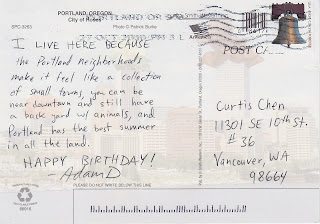 PORTLAND, OREGON
City of Roses
SPC-3083
Photo © Patrick Burke
PORTLAND OR
POST CA
I LIVE HERE BECAUSE
the Portland neighborhoods
make it feel like a collection
of small towns, you can be
near downtown and still have
a back yard w/ animals, and
Portland has the best summer
in all the land.
HAPPY BIRTHDAY!
-AdamD
Curtis Chen
11301 SE 10th St.
#36
Vancouver, WA
98664
PLEASE DO NOT WRITE BELOW THIS LINE